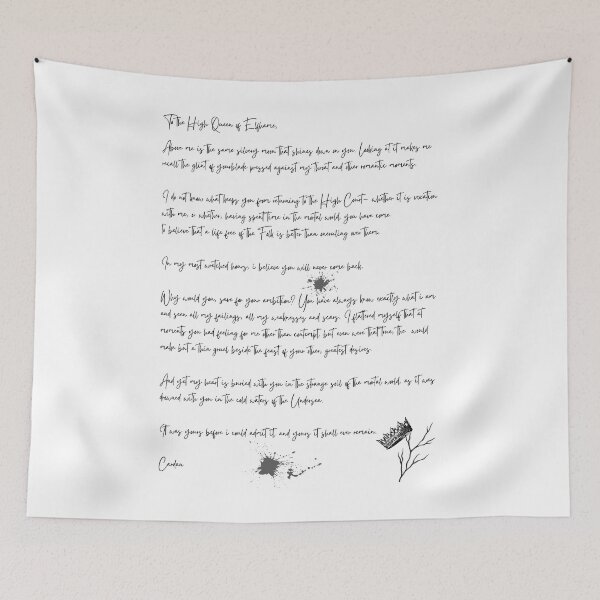 To the High Queen of Elfhame,
Above me is the same silvery moon that shines down on you. Looking at it makes me
recall the glint of your blade pressed against my throat and other romantic moments.
I do not know what keeps you from returning to the High Court- whether it is vexation
with me, or whether, having spent time in the mortal world, you have come
to believe that a life free of the Folk is better than one ruling over them.
In my most wretched hours, i believe you will never come back.
Why would you, save for your ambition? You have always known exactly what i am
and seen all my failings, all my weaknesses and scars. I flattered myself that at
moments you had feeling for me other than contempt, but even were that true, the would
make but a thin gruel beside the feast of your other, greatest desires.
And yet my heart is buried with you in the strange soil of the mortal world, as it was
drowned with you in the cold waters of the Undersea.
It was yours before i could admit it, and yours it shall ever remain.
Cardan